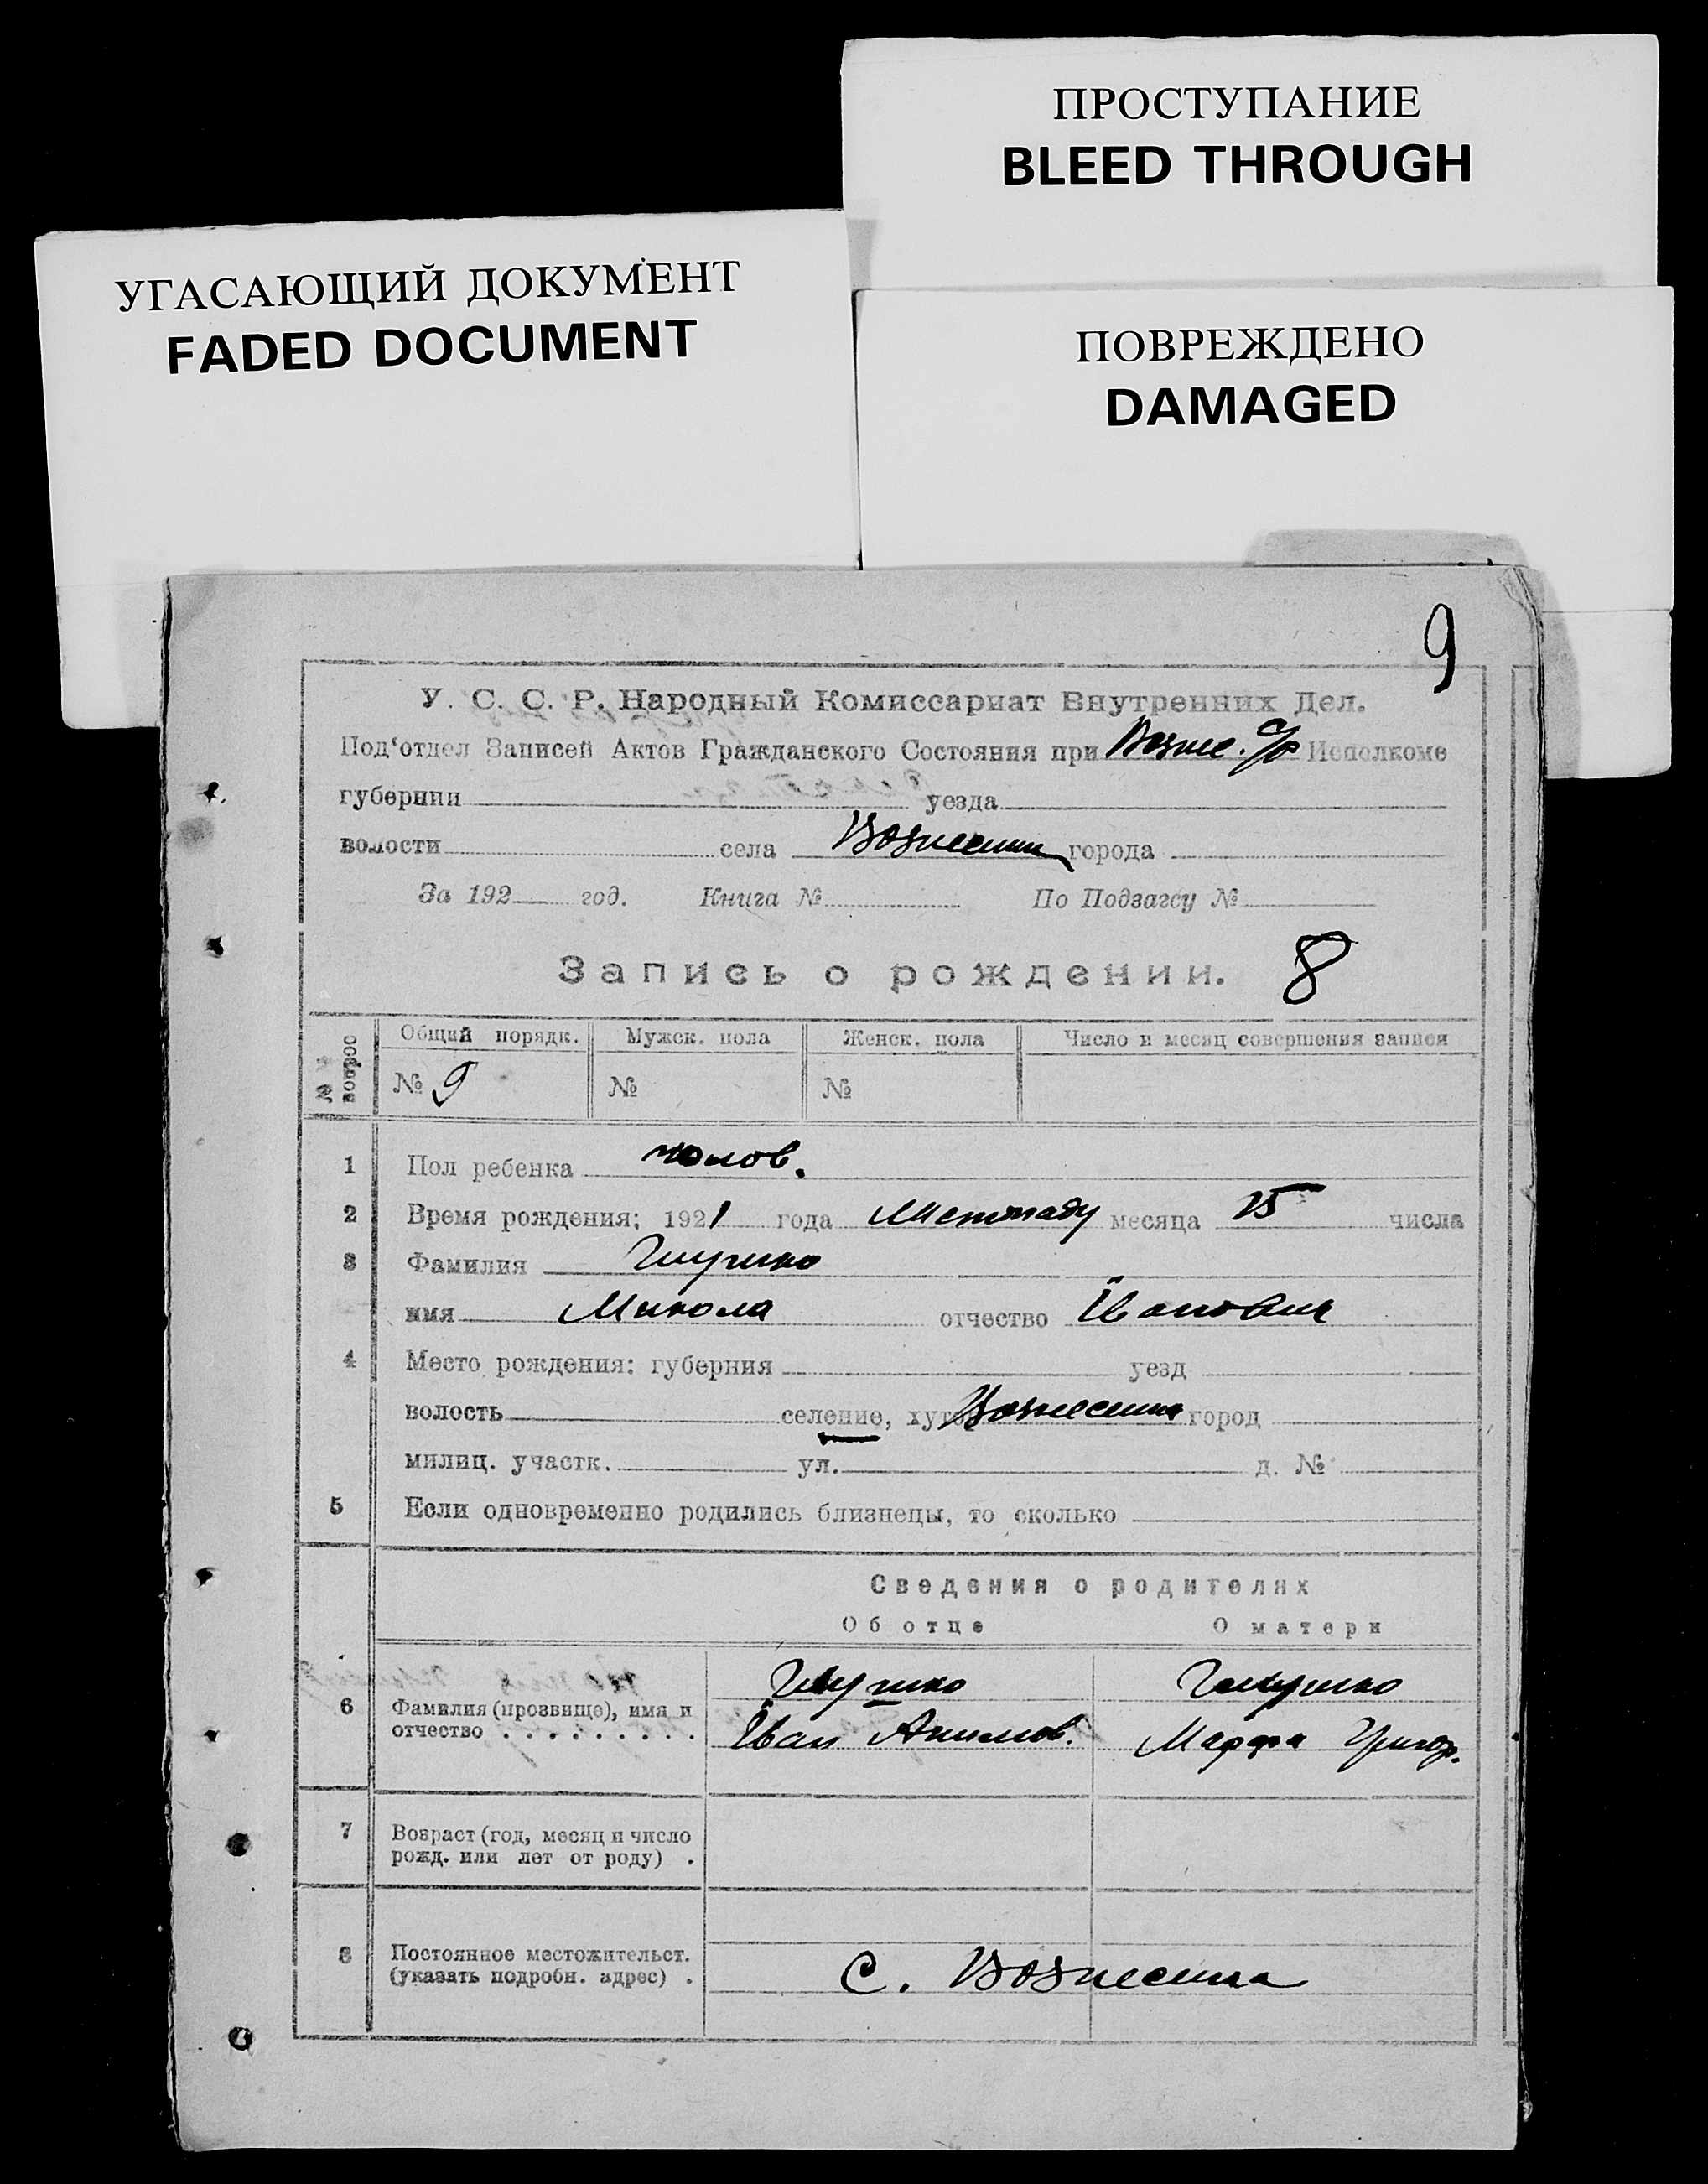 ПРОСТУПАНИЕ
BLEED THROUGH
УГАСАЮЩИЙ ДОКУМЕНТ
FADED DOCUMENT
ПОВРЕЖДЕНО
DAMAGED
9
У. С. С. Р. Народный Комиссариат Внутренних Дел.
Под'отдел Записей Актов Гражданского Состояния при Возне. С/р Исполкоме
губернии уезда
волости села города
За 192 год. Книга № По Подзагсу №
Запись о рождении. 8
№ вопрос Общий порядк. Мужск. пола Женск. пола Число и месяц совершения записи
№ 9 № №
1 Пол ребенка чолов.
2 Время рождения; 1921 года Листопаду месяца 25 числа
3 Фамилия
имя Микола отчество Іванович
4 Место рождения: губерния уезд
волость селение, хут город
милиц. участк. ул. д. №
5 Если одновременно родились близнецы, то сколько
Сведения о родителях
Об отце О матери
6 Фамилия (прозвище), имя и
отчество . . . . . . . . . Іван Акимов. Марфа Григор.
7 Возраст (год, месяц и число
рожд. или лет от роду) .
8 Постоянное местожительст.
(указать подробн. адрес) . С. Вознесенка